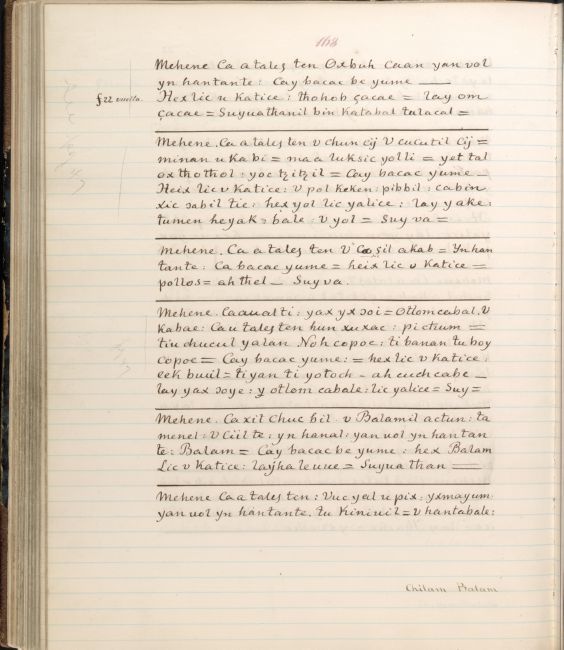 168
Mehene Ca a tales ten Oxbuh Caan yan vol
yn hantante: Cay bacac be yume —
f 22 vuelta.
Hex lic u Katice: thohob çacae = lay om
çacae = Suyuathanil bin Katabal tulacal =
Mehene. Ca a tales ten v chun cij V cucutil Cij =
minan u Kabi = maa luksic yolli = yet tal
ox tho thol: yoc tzitzil = Cay bacac yume —
Heix lic v Katice: v pol Keken: pibbil: ca bin
xic ɔabil tie: hex yol lic yalice: lay y ake:
tumen he yak: bale: v yol = Suy va =
Mehene. Ca a tales ten V Coɔil akab = Yn han
tante: Ca bacac yume = heix lic v Katice =
pollos = ah thel — Suy va.
Mehene. Ca aualti: yax yx ɔoi = Otlom cabal. V
Kabae: Ca u tales ten hun xuxac: pictum =
tiu chucul yalan Noh copoc: ti banan tu boy
copoc = Cay bacac yume: = hex lic v Katice:
eek buil = ti yan ti yotoch - ah cuch cabe —
lay yax ɔoye: y otlom cabale: lic yalice = Suy =
Mehene. Ca xit Chuc bil v Balamil actun: ta
menel: v Ciilte: yn hanal: yan uol yn hantan
te: Balam = Cay bacac be yume: hex Balam
Lic v Katice: lay haleuue = Suyua than —
Mehene Ca a tales ten: Vuc yal u pix: yxmayum:
yan uol yn hantante. tu Kiniuil = v hantabale:
Chilam Balam